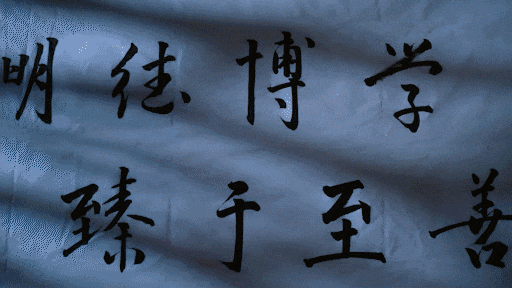 明德博学
臻于至善